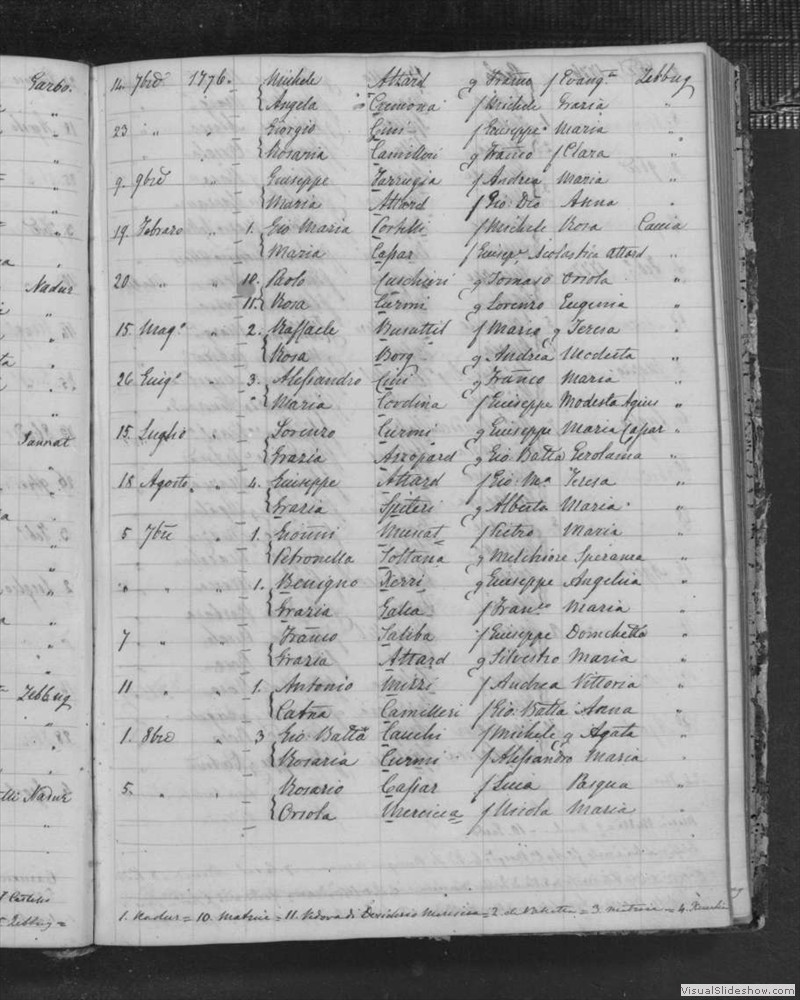 Garbo. 14. 7bre 1776. Michele Attard q Franco f Evangta Zebbug
Angela Cremona f Michele Grazia "
23 " Giorgio Cini f Giuseppe Maria "
Rosaria Camilleri q Franco f Clara "
9. 9bre Giuseppe Farrugia f Andrea Maria "
Maria Attard f Gio: Dio Anna "
19. Febraro " 1. Gio Maria Cortilli f Michele Rosa Caccia
Maria Caspar f Giusepe Scolastica Attard "
Nadur 20 " " 10. Paolo Cuschieri q Tomaso Orsola "
11. Rosa Curmi q Lorenzo Eugenia "
15. Mago " 2. Raffaele Busuttil f Mario q Teresa "
Rosa Borg q Andrea Modesta "
26 Giugo " 3. Alessandro Cini q Franco Maria "
Maria Cordina f Giuseppe Modesta Agius "
Sannat 15. Luglio " Lorenzo Curmi q Giuseppe Maria Caspar "
Grazia Axopard q Gio Batta Gerolama "
18 Agosto " 4. Giuseppe Attard f Gio: Ma Teresa "
Grazia Spiteri q Alberto Maria "
5 7bre " 1. Gionni Muscat f Pietro Maria "
Petronella Soltana q Melchiore Speranza "
" " " 1. Benigno Refalo q Giuseppe Angelica "
Grazia Galea f Franco Maria "
7 " " Franco Saliba f Giuseppe Domchella "
Grazia Attard q Silvestro Maria "
Zebbug 11 " " 1. Antonio Mizzi f Andrea Vittoria "
Catna Camilleri f Gio: Batta Anna "
1. 8bre " 3 Gio: Batta Cauchi f Michele q Agata "
Rosaria Curmi f Alessandro Maria "
Nadur 5. " " Rosario Caspar f Luca Pasqua "
Orsola Mercieca f Nicola Maria "
Zebbug =
1. Nadur = 10. Matrice = 11. Vedova di Desiderio Mercieca = 2. = 3 Matrice = 4.
VisualSlideshow.com